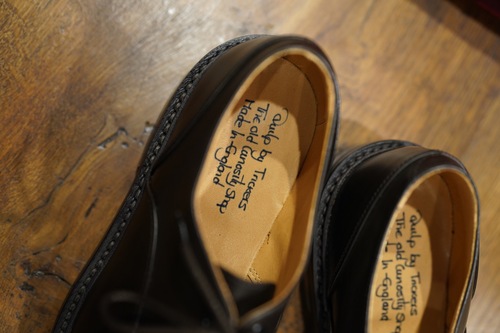 Quilp by Trickers
The old Curiosity Shop
Made In England
Quilp by Trickers
The old Curiosity S
In England